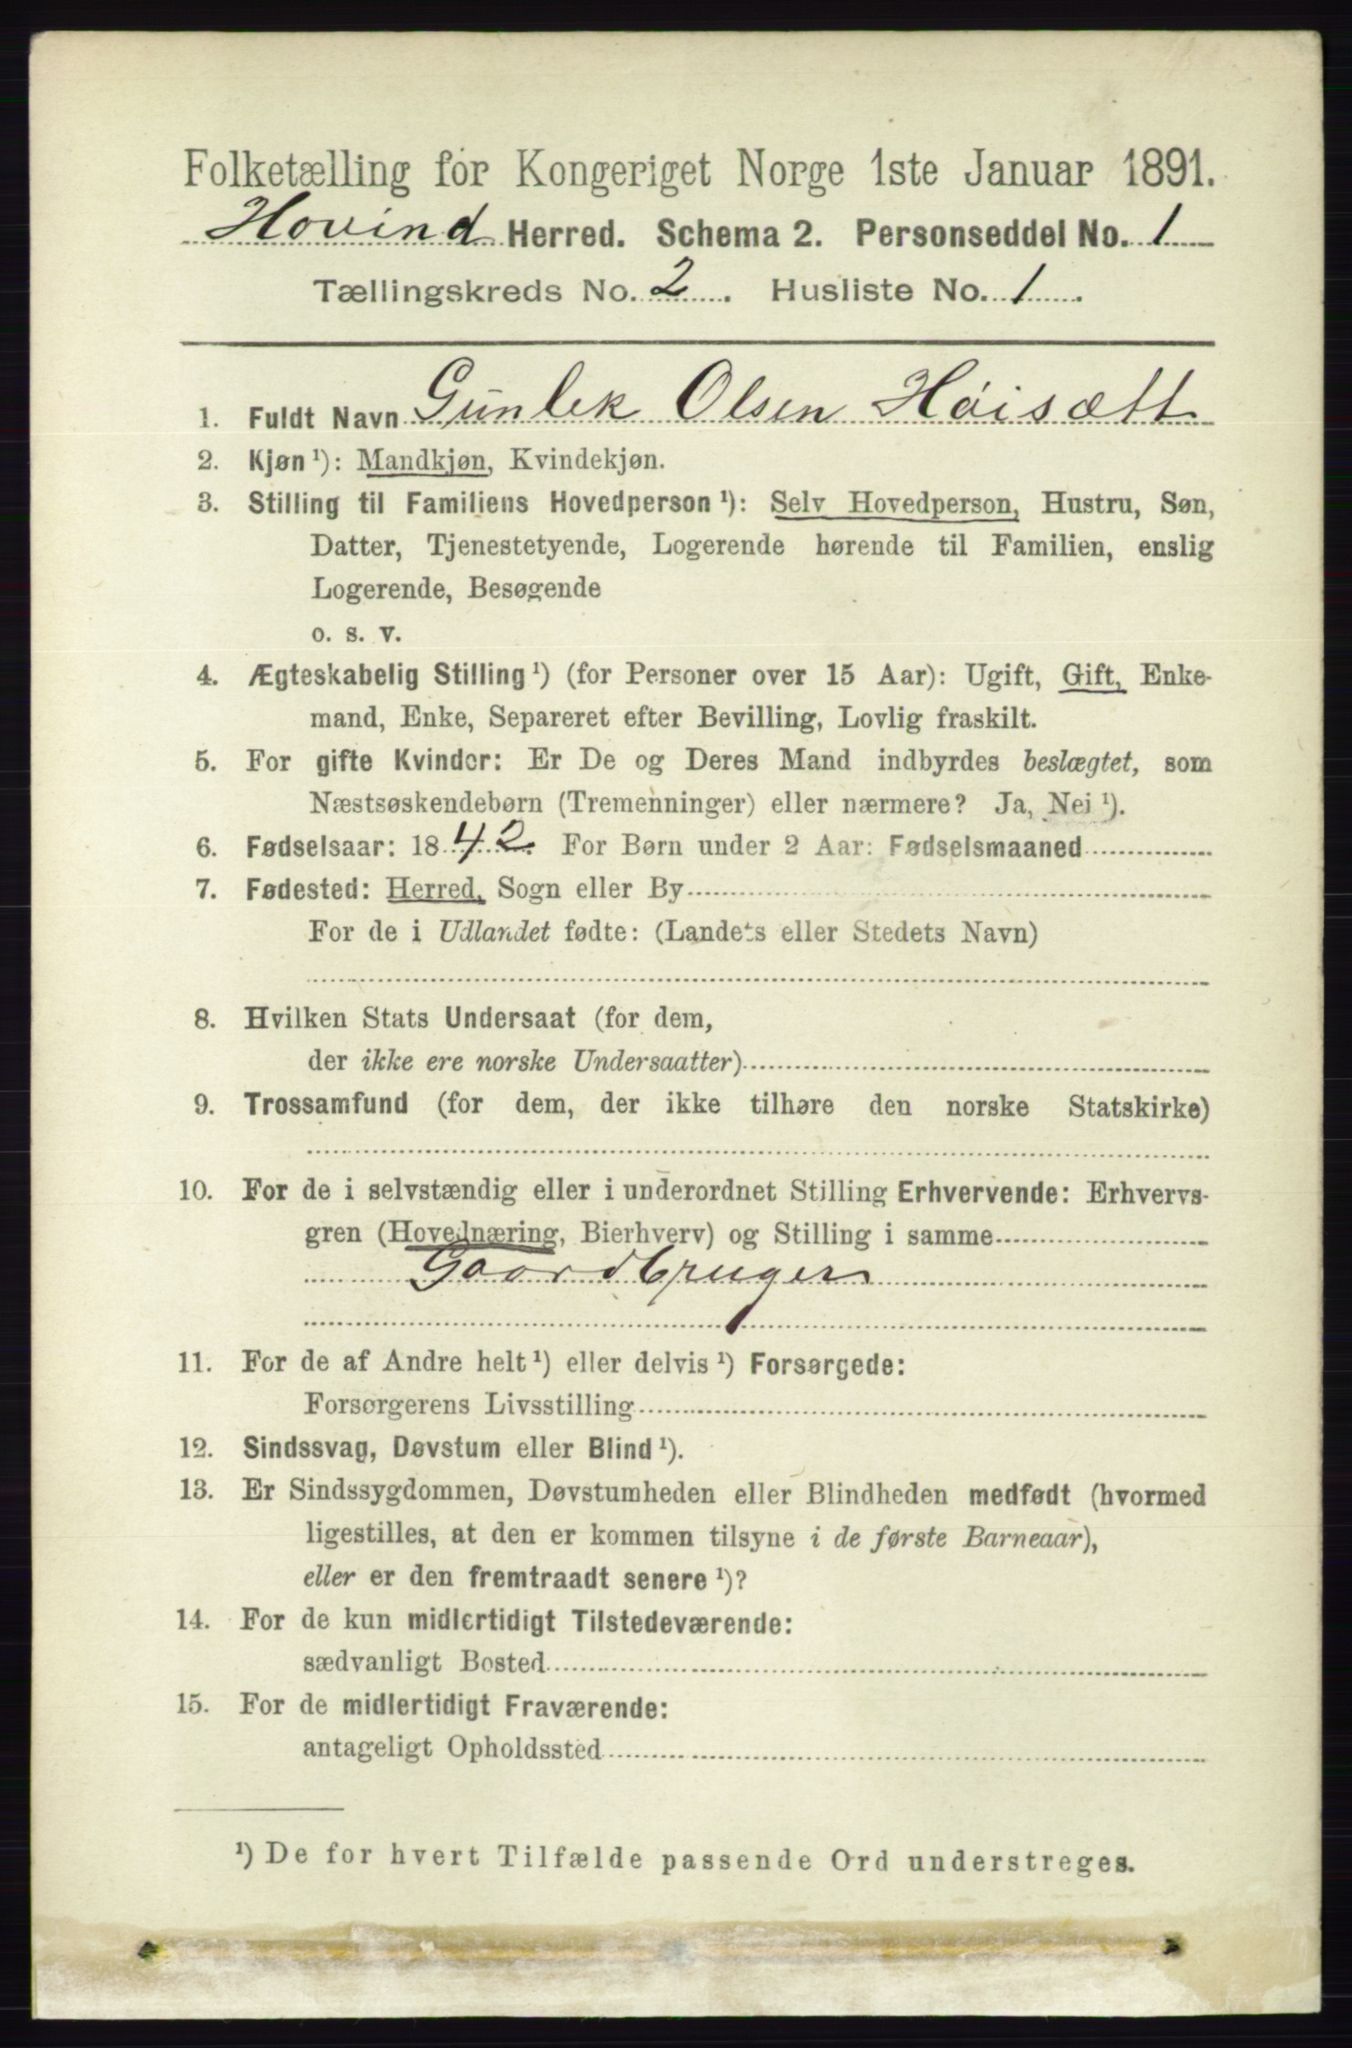 Folketælling for Kongeriget Norge 1ste Januar 1891.
Hovind Herred. Schema 2. Personseddel No. 1
Tællingskreds No. 2. Husliste No. 1.
1. Fuldt Navn Gunlek Olsen Høisætt
2. Kjøn ¹): Mandkjøn, Kvindekjøn.
3. Stilling til Familiens Hovedperson ¹): Selv Hovedperson, Hustru, Søn,
Datter, Tjenestetyende, Logerende hørende til Familien, enslig
Logerende, Besøgende
o. s. v.
4. Ægteskabelig Stilling ¹) (for Personer over 15 Aar): Ugift, Gift, Enke-
mand, Enke, Separeret efter Bevilling, Lovlig fraskilt.
5. For gifte Kvinder: Er De og Deres Mand indbyrdes beslægtet, som
Næstsøskendebørn (Tremenninger) eller nærmere? Ja, Nei ¹).
6. Fødselsaar: 1842. For Børn under 2 Aar: Fødselsmaaned
7. Fødested: Herred, Sogn eller By
For de i Udlandet fødte: (Landets eller Stedets Navn)
8. Hvilken Stats Undersaat (for dem,
der ikke ere norske Undersaatter)
9. Trossamfund (for dem, der ikke tilhøre den norske Statskirke)
10. For de i selvstændig eller i underordnet Stilling Erhvervende: Erhvervs-
gren (Hovednæring, Bierhverv) og Stilling i samme
Gaardbruger
11. For de af Andre helt ¹) eller delvis ¹) Forsørgede:
Forsørgerens Livsstilling
12. Sindssvag, Døvstum eller Blind ¹).
13. Er Sindssygdommen, Døvstumheden eller Blindheden medfødt (hvormed
ligestilles, at den er kommen tilsyne i de første Barneaar),
eller er den fremtraadt senere ¹)?
14. For de kun midlertidigt Tilstedeværende:
sædvanligt Bosted
15. For de midlertidigt Fraværende:
antageligt Opholdssted
¹) De for hvert Tilfælde passende Ord understreges.